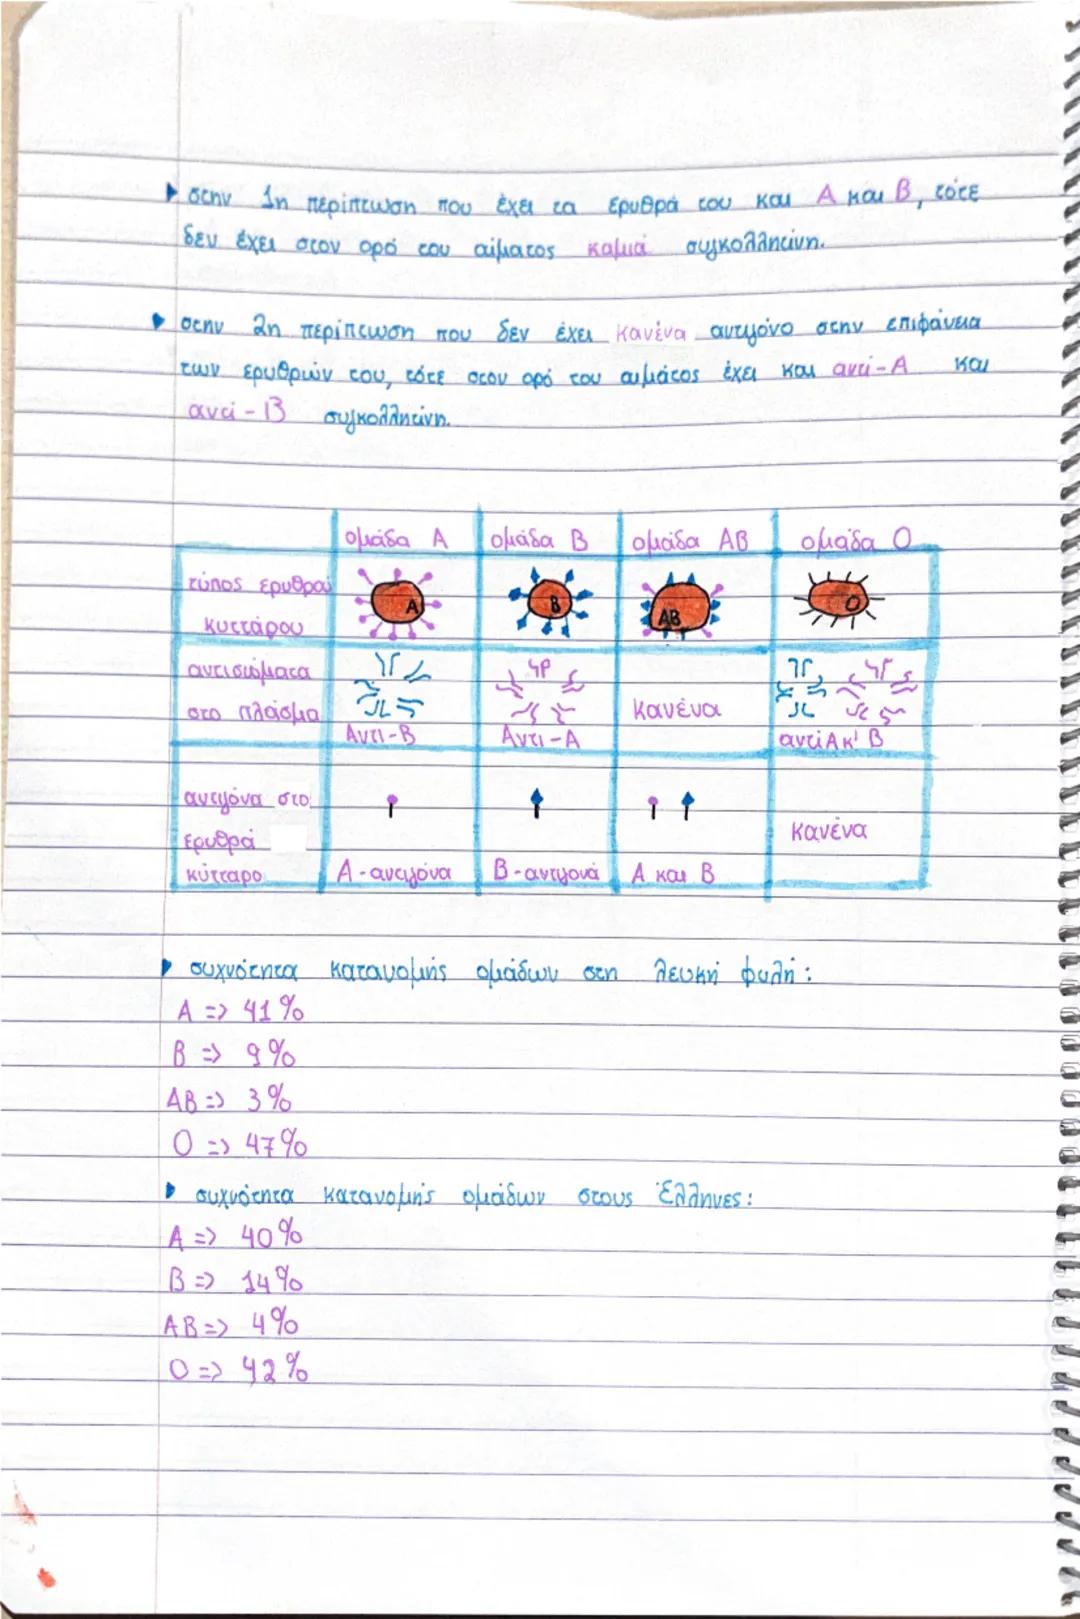 στην 1η περίπτωση που έχει τα ερυθρά του και Α και Β, τότε
δεν έχει στον ορό του αίματος καμιά συγκολλητίνη.
στην 2η περίπτωση που δεν έχει κανένα αντιγόνο στην επιφάνεια
των ερυθρών του, τότε στον ορό του αίματος έχει και αντί-Α και
αντί-Β συγκολλητίνη.
ομάδα Α ομάδα Β ομάδα ΑΒ ομάδα Ο
τύπος ερυθρού
κυττάρου
Α Β ΑΒ Ο
αντισώματα
στο πλάσμα
Αντι-Β Αντι-Α Κανένα αντί Α κ' Β
αντιγόνα στο
ερυθρά
κύτταρο
Α-αντιγόνα Β-αντιγονά Α και Β Κανένα
συχνότητα κατανομής ομάδων στη λευκή φυλή:
Α => 41%
Β => 9%
ΑΒ => 3%
Ο => 47%
συχνότητα κατανομής ομάδων στους Έλληνες:
Α => 40%
Β => 14%
ΑΒ => 4%
Ο => 42%